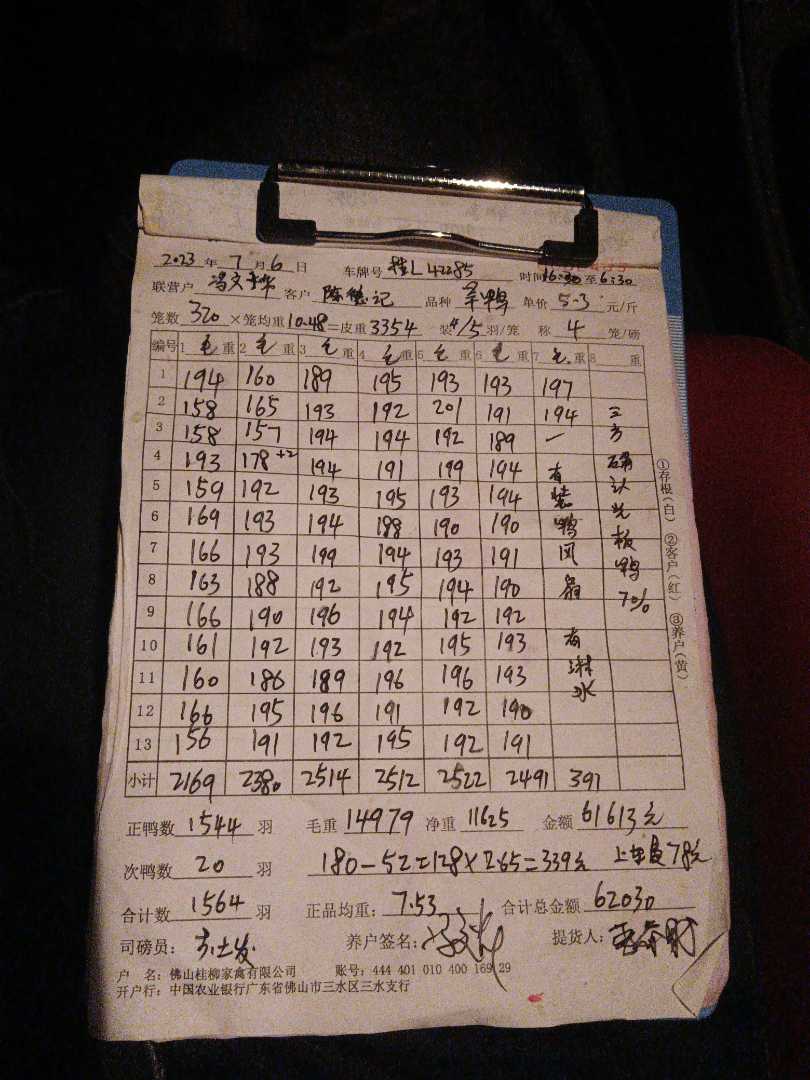 2023 年 7 月 6 日 车牌号 桂L42285 时间 16:30 至 6:30
联营户 冯文华 客户 陈德记 品种 羊鸭 单价 5.3 元/斤
笼数 320 ×笼均重 10.48 =皮重 3354 装 15 羽/笼 称 4 笼/磅
编号 1 毛 重 2 毛 重 3 毛 重 4 毛 重 5 毛 重 6 毛 重 7 毛 重 8 重
1 194 160 189 195 193 193 197
2 158 165 193 192 201 191 194
3 158 157 194 194 192 189 —
4 193 178+2 194 191 199 194
5 159 192 193 195 193 194
6 169 193 194 188 190 190
7 166 193 199 194 193 191
8 163 188 192 195 194 190
9 166 190 196 194 192 192
10 161 192 193 192 195 193
11 160 186 189 196 196 193
12 166 195 196 191 192 190
13 156 191 192 195 192 191
小计 2169 2380 2514 2512 2522 2491 391
有装鸭风扇
有淋水
三方确认光板鸭70%
①存根(白) ②客户(红) ③养户(黄)
正鸭数 1544 羽 毛重 14979 净重 11625 金额 61613元
次鸭数 20 羽 180-52=128×2.65=339元 上车费78元
合计数 1564 羽 正品均重: 7.53 合计总金额 62030
司磅员: 养户签名: 提货人:
户 名: 佛山桂柳家禽有限公司 账号: 444 401 010 400 169 29
开户行: 中国农业银行广东省佛山市三水区三水支行